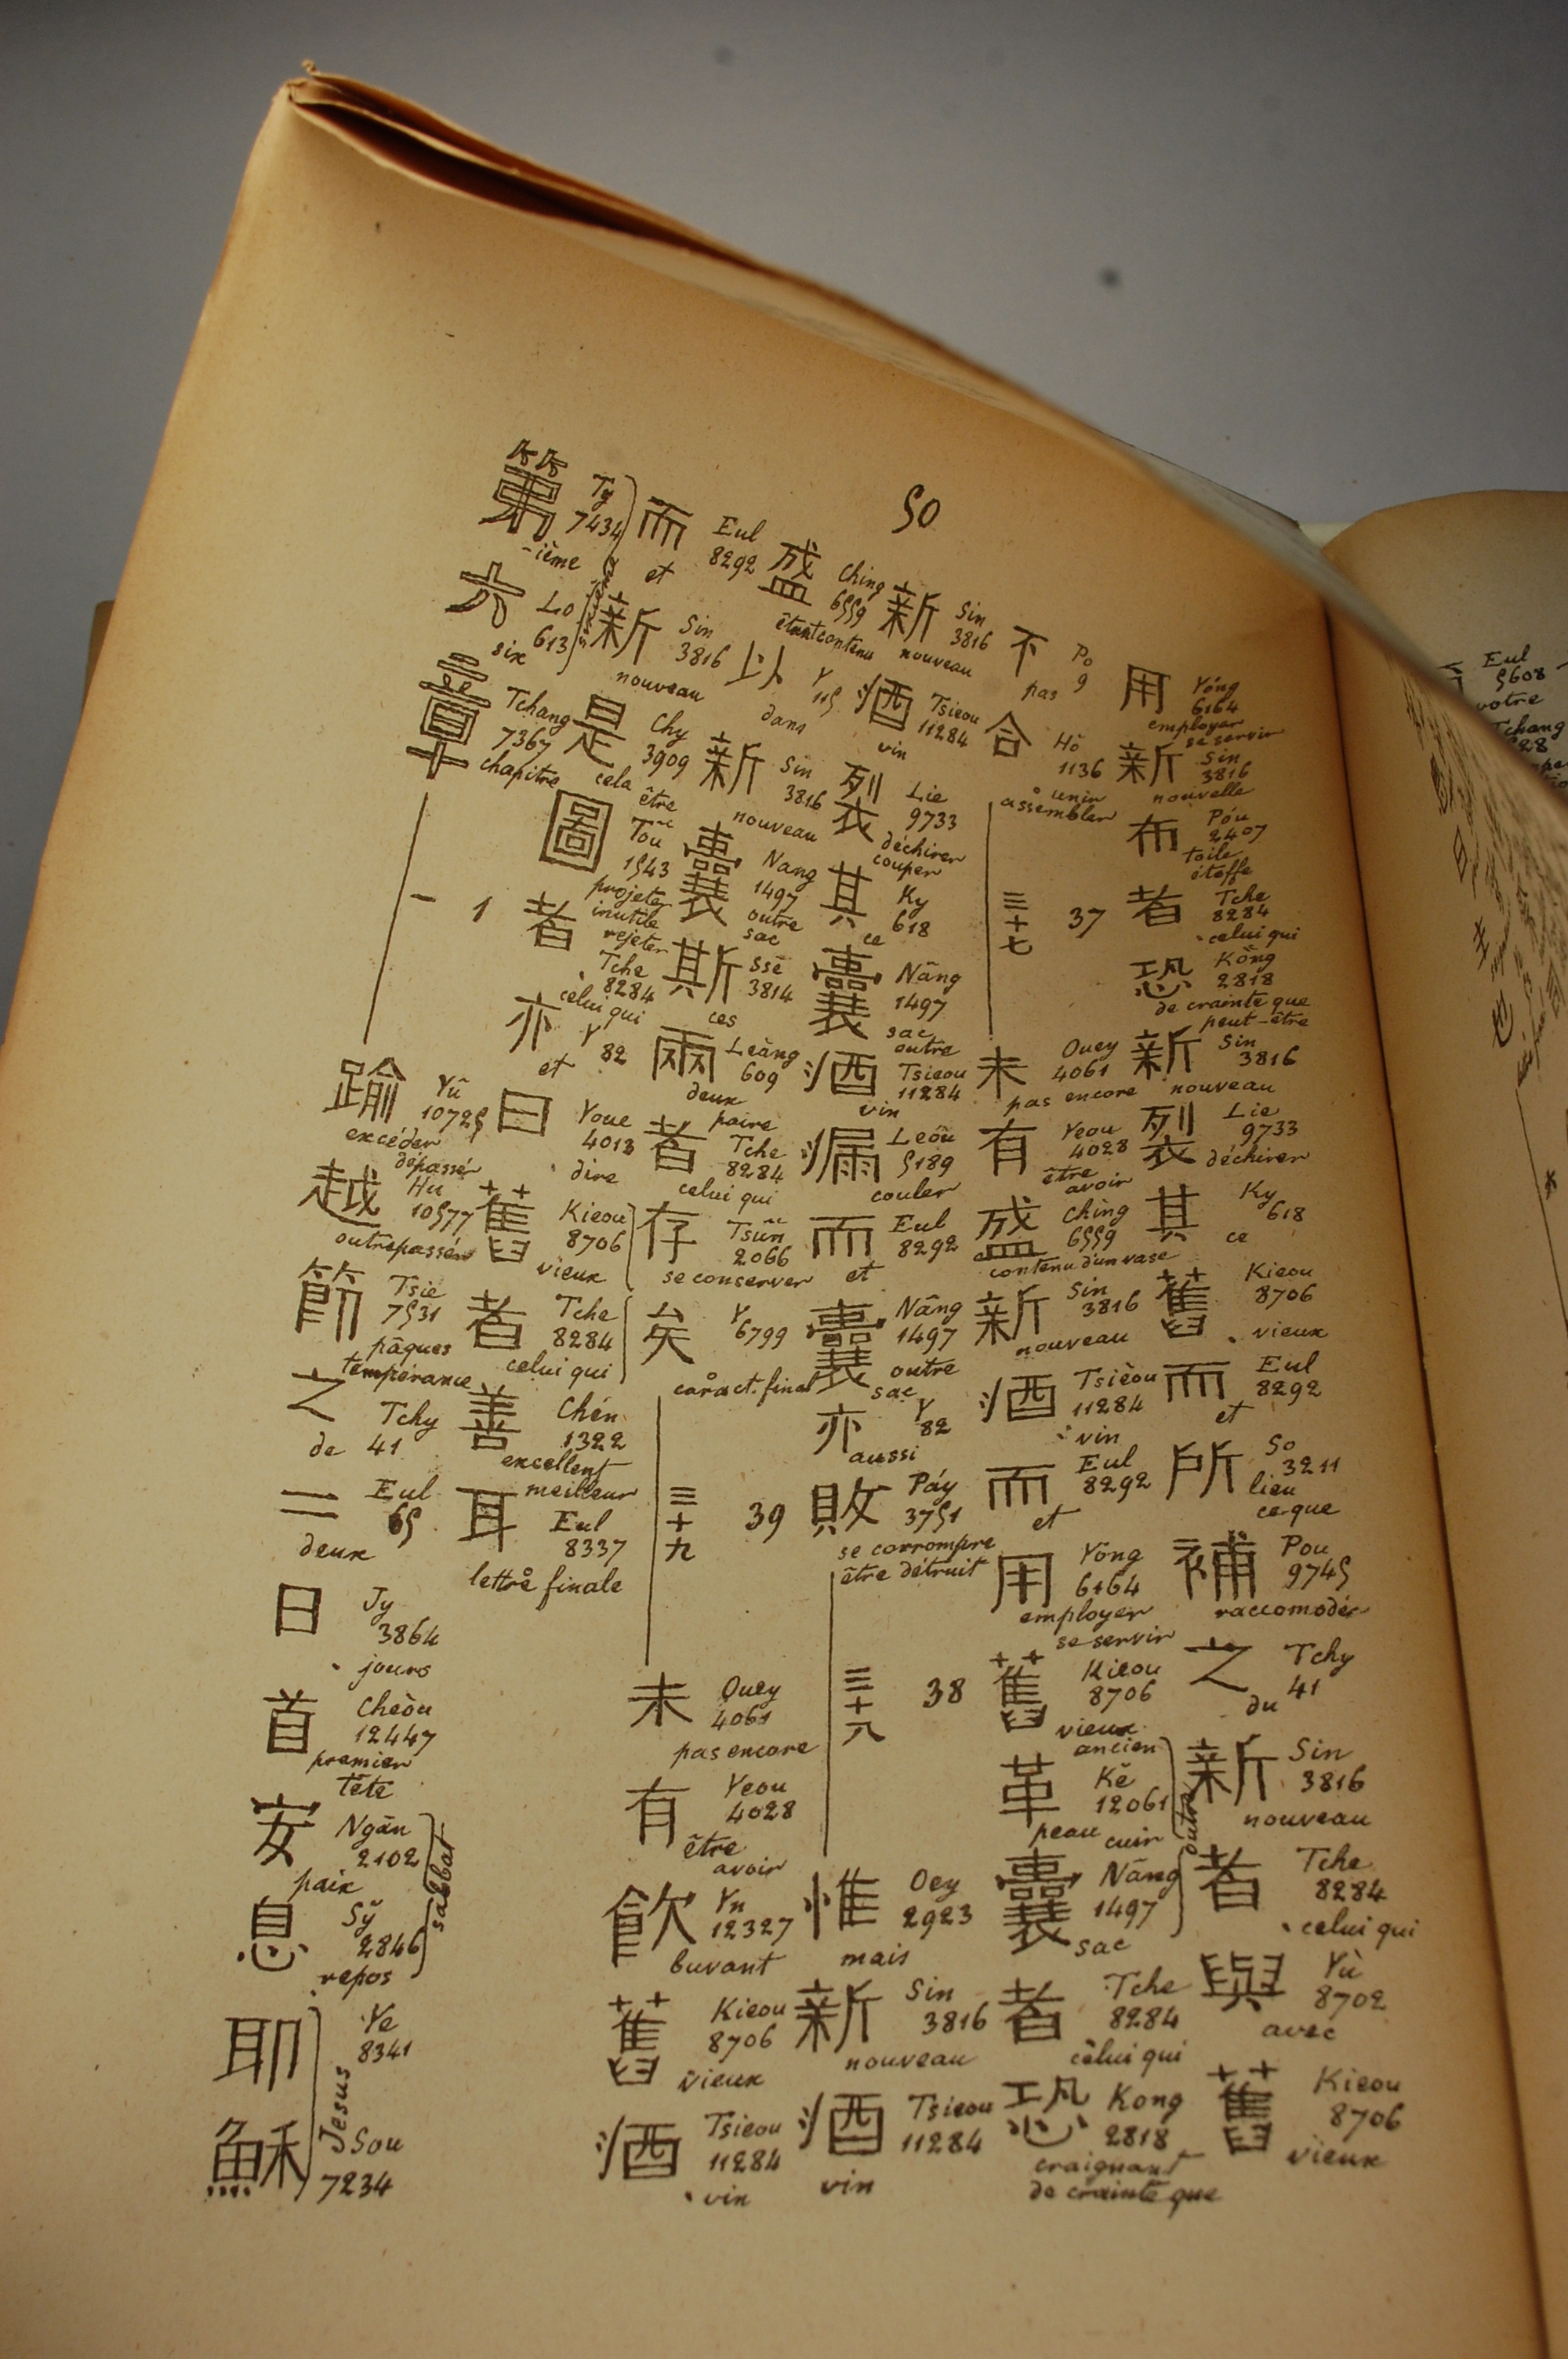 50
用 Yóng
6164
employer
se servir
新 Sin
3816
nouvelle
布 Póu
2407
toile
étoffe
者 Tche
8284
celui qui
恐 Kŏng
2818
de crainte que
peut-être
新 Sin
3816
nouveau
裂 Lie
9733
déchirer
其 Ky
618
ce
舊 Kieou
8706
vieux
而 Eul
8292
et
所 So
3211
lieu
ce que
補 Pou
9745
raccomodér
之 Tchy
41
du
新 Sin
3816
nouveau
者 Tche
8284
celui qui
與 Yù
8702
avec
舊 Kieou
8706
vieux
不 Po
9
pas
合 Hô
1136
unir
assembler
三十七 37
未 Ouey
4061
pas encore
有 Yeou
4028
être
avoir
盛 Ching
6559
contenu d'un vase
新 Sin
3816
nouveau
酒 Tsièou
11284
vin
而 Eul
8292
et
用 Yông
6164
employer
se servir
舊 Kieou
8706
vieux
ancien
革 Kĕ
12061
peau cuir
囊 Nâng
1497
sac
outre
者 Tche
8284
celui qui
恐 Kong
2818
craignant
de crainte que
新 Sin
3816
nouveau
酒 Tsieou
11284
vin
裂 Lie
9733
déchirer
couper
其 Ky
618
ce
囊 Nâng
1497
sac
outre
酒 Tsieou
11284
vin
漏 Leôu
5189
couler
而 Eul
8292
et
囊 Nâng
1497
outre
sac
亦 Y
82
aussi
敗 Páy
3751
se corrompre
être détruit
三十八 38
惟 Oey
2923
mais
新 Sin
3816
nouveau
酒 Tsieou
11284
vin
盛 Ching
6559
étant contenu
以 Y
115
dans
新 Sin
3816
nouveau
囊 Nang
1497
outre
sac
斯 Ssē
3814
ces
兩 Leàng
609
deux
paire
者 Tche
8284
celui qui
存 Tsûn
2066
se conserver
矣 Y
6799
caract. final
三十九 39
未 Ouey
4061
pas encore
有 Yeou
4028
être
avoir
飲 Yn
12327
buvant
舊 Kieou
8706
vieux
酒 Tsieou
11284
vin
而 Eul
8292
et
新 Sin
3816
nouveau
是 Chy
3909
cela
être
圖 Toû
1543
projeter
inutile
rejeter
者 Tche
8284
celui qui
亦 Y
82
et
曰 Youe
4013
dire
舊 Kieou
8706
vieux
者 Tche
8284
celui qui
善 Chén
1322
excellent
meilleur
耳 Eul
8337
lettre finale
第 Ty
7434
-ième
六 Lo
613
six
章 Tchang
7367
chapitre
一 1
踰 Yû
10725
excéder
dépassér
越 Hu
10577
outrepassér
節 Tsie
7531
pâques
tempérance
之 Tchy
de 41
二 Eul
65
deux
日 Jy
3864
jours
首 Cheòu
12447
premier
tête
安 Ngān
2102
paix
息 Sý
2846
repos
sabbat
耶 Ye
8341
穌 Sou
7234
Jesus
Eul
5608
votre